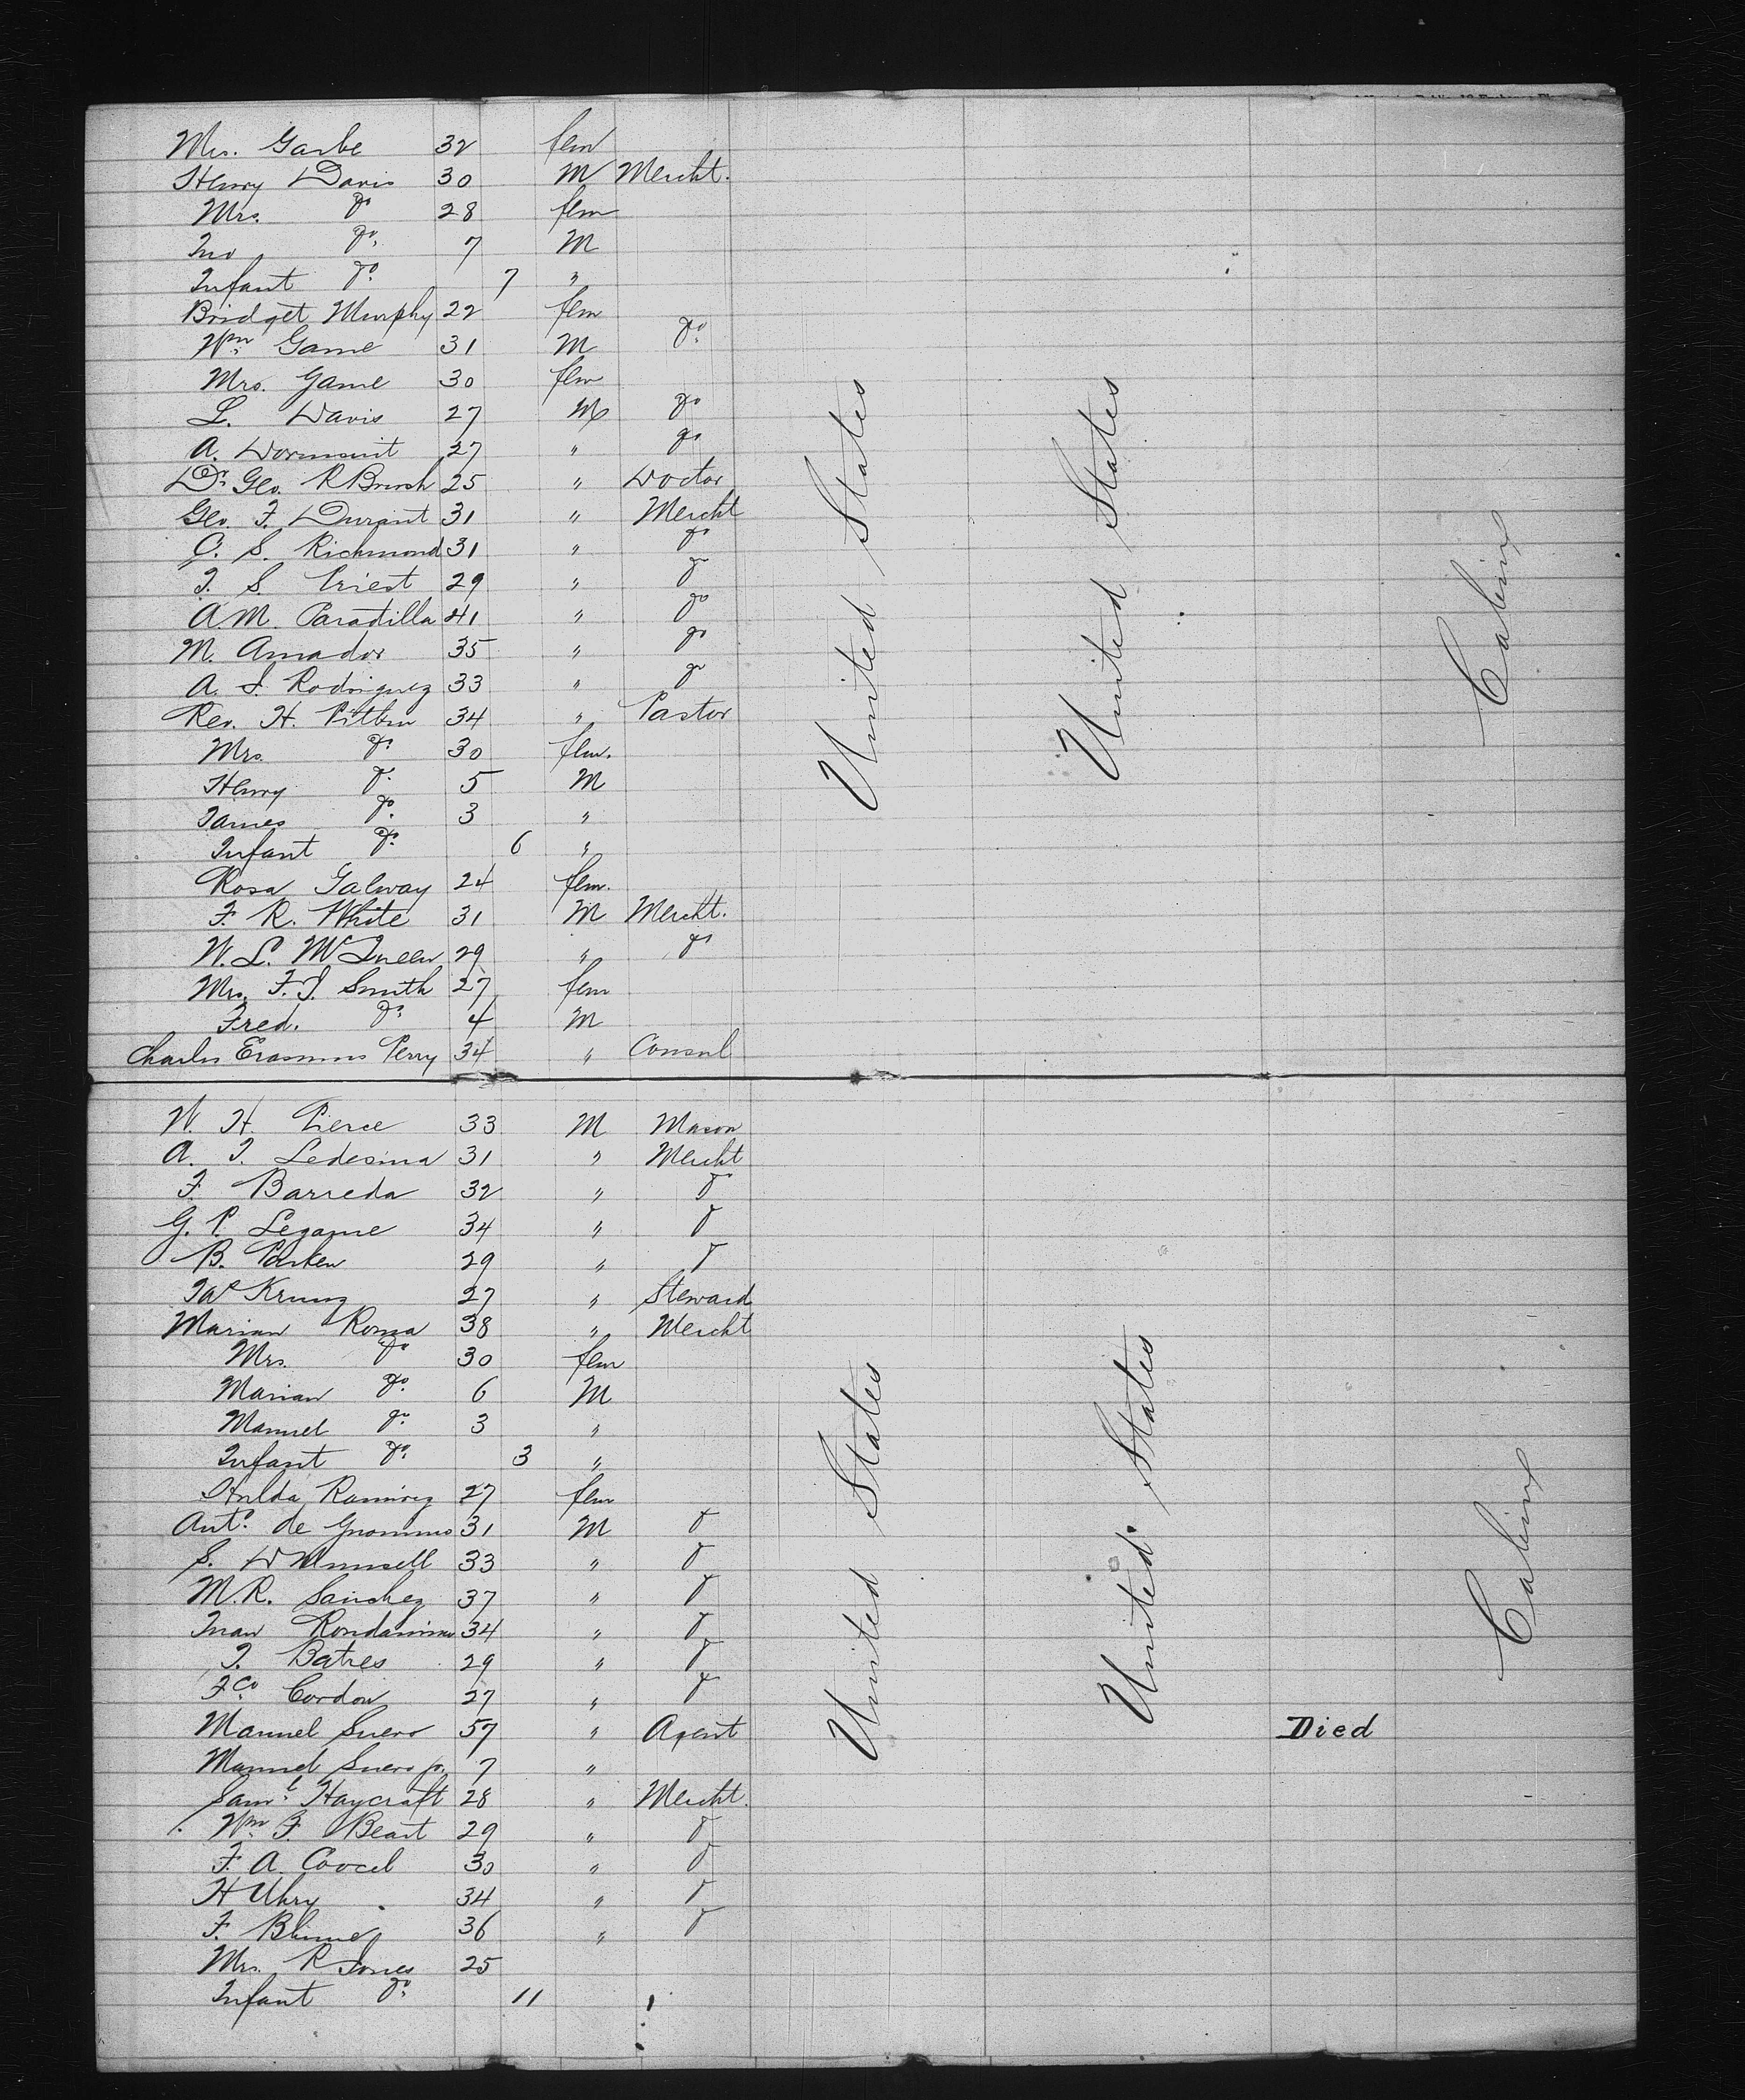 Mrs. Garbe 32 fem
Henry Davis 30 M Mercht.
Mrs. do 28 fem
Jno do. 7 M
Infant do. 7 "
Bridget Murphy 22 fem
Wm Game 31 M do.
Mrs. Game 30 fem
L. Davis 27 M do
A. Dormunt 27 " do
Dr. Geo. R Brush 25 " Doctor
Geo. F. Durant 31 " Mercht
C. S. Richmond 31 " do
J. S. Priest 29 " do
A. M. Paradilla 41 " do
M. Amador 35 " do
A. J. Rodriguez 33 " do
Rev. H. 34 " Pastor
Mrs. do. 30 fem.
Henry do. 5 M
James do. 3 "
Infant do. 6 "
Rosa Galway 24 fem.
F. R. White 31 M Mercht.
W. L. McQueen 29 " do
Mrs. F. J. Smith 27 fem
Fred. do. 4 M
Charles Erasmus Perry 34 " Consul
United States
United States
Cabin
W. H. Pierce 33 M Mason
A. J. Ledesma 31 " Mercht
F. Barreda 32 " do
G. P. Legame 34 " do
B. 29 " do
27 " Steward
Marian Roma 38 " Mercht
Mrs. do 30 fem
Marian do. 6 M
Manuel do. 3 "
Infant do. 3 "
Hulda Ramirez 27 fem
Anto. de 31 M do
S. D Munsell 33 " do
M. R. Sanchez 37 " do
Juan 34 " do
J. Batres 29 " do
Fco. Cordon 27 " do
Manuel Suero 57 " Agent Died
Manuel Suero jr. 7 "
Saml. Haycraft 28 " Mercht.
Wm F. Beart 29 " do
F. A. 30 " do
H Uhry 34 " do
F. 36 " do
Mrs. R Jones 25
Infant do. 11
United States
United States
Cabin